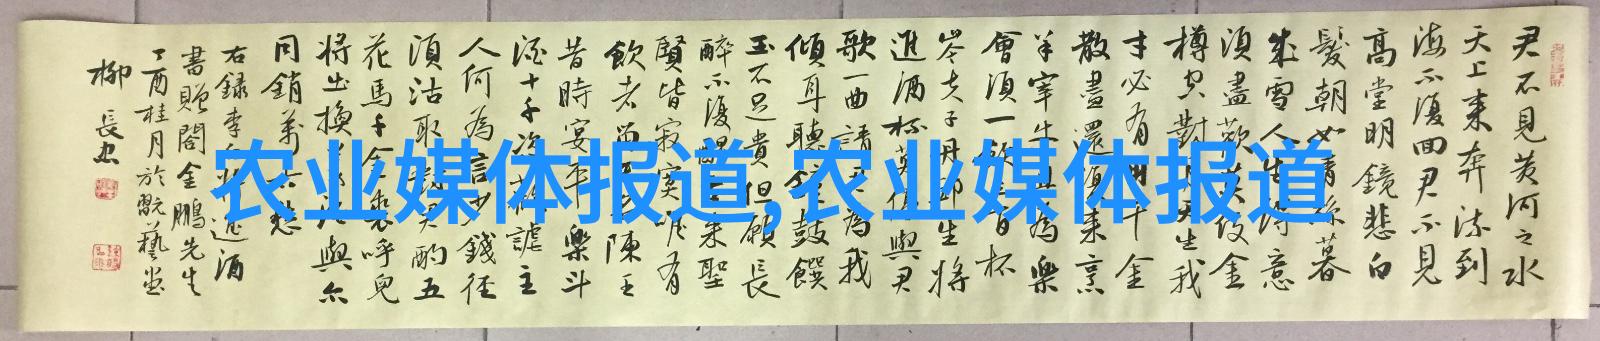 君不见黄河之水
天上来奔流到
海不復回君不見
高堂明鏡悲白
髮朝如青絲暮
成雪人生得意
須盡歡莫使金
樽空對月天生我
才必有用千金
散盡還復来烹
羊宰牛且為樂
會須一飲三百杯
岑夫子丹邱生将
進酒杯莫停與君
歌一曲請君為我
傾耳聽鐘鼓饌
玉不足貴但願長
醉不復醒古来聖
賢皆寂寞唯有
飲者留其名陳王
昔時宴平樂斗
酒十千恣歡謔主
人何為言少錢径
須沽取對君酌五
花馬千金裘呼兒
将出換美酒與尔
同銷萬古愁
右録李白将進酒
書贈閣金鵬先生
丁酉桂月於翫藝堂
柳長忠
农业媒体报道,农业媒体报道